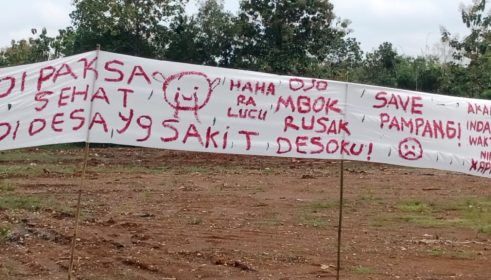 DI PAKSA
SEHAT
DI DESA, Yg SAKIT
HAHA
RA
LUCU
OJO
MBOK
RUSAK
DESOKU!
SAVE
PAMPANG!
AKAN
INDA
WAKT